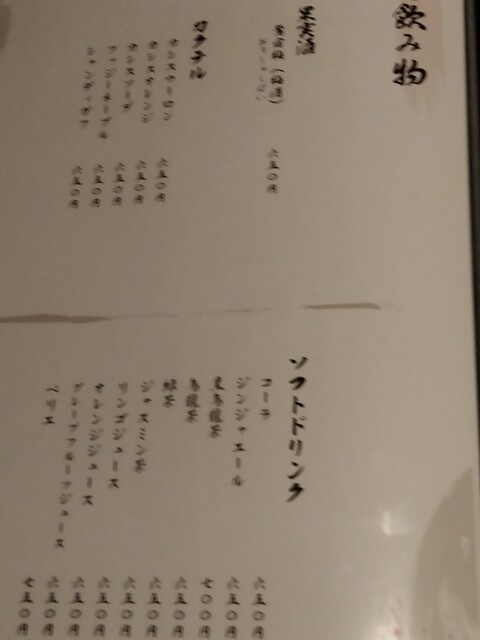 飲み物
果実酒
(梅酒)
六五〇円
カクテル
カシスウーロン 六五〇円
カシスオレンジ 六五〇円
カシスソーダ 六五〇円
ファジーネーブル 六五〇円
シャンディガフ 六五〇円
ソフトドリンク
コーラ 六五〇円
ジンジャエール 六五〇円
黒烏龍茶 七〇〇円
烏龍茶 六五〇円
緑茶 六五〇円
ジャスミン茶 六五〇円
リンゴジュース 六五〇円
オレンジジュース 六五〇円
グレープフルーツジュース 六五〇円
ペリエ 七五〇円